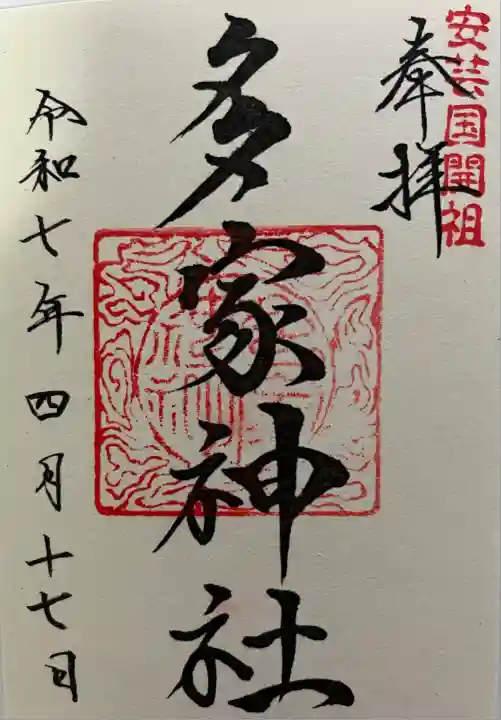 安芸国開祖
奉拝
多家神社
令和七年四月十七日